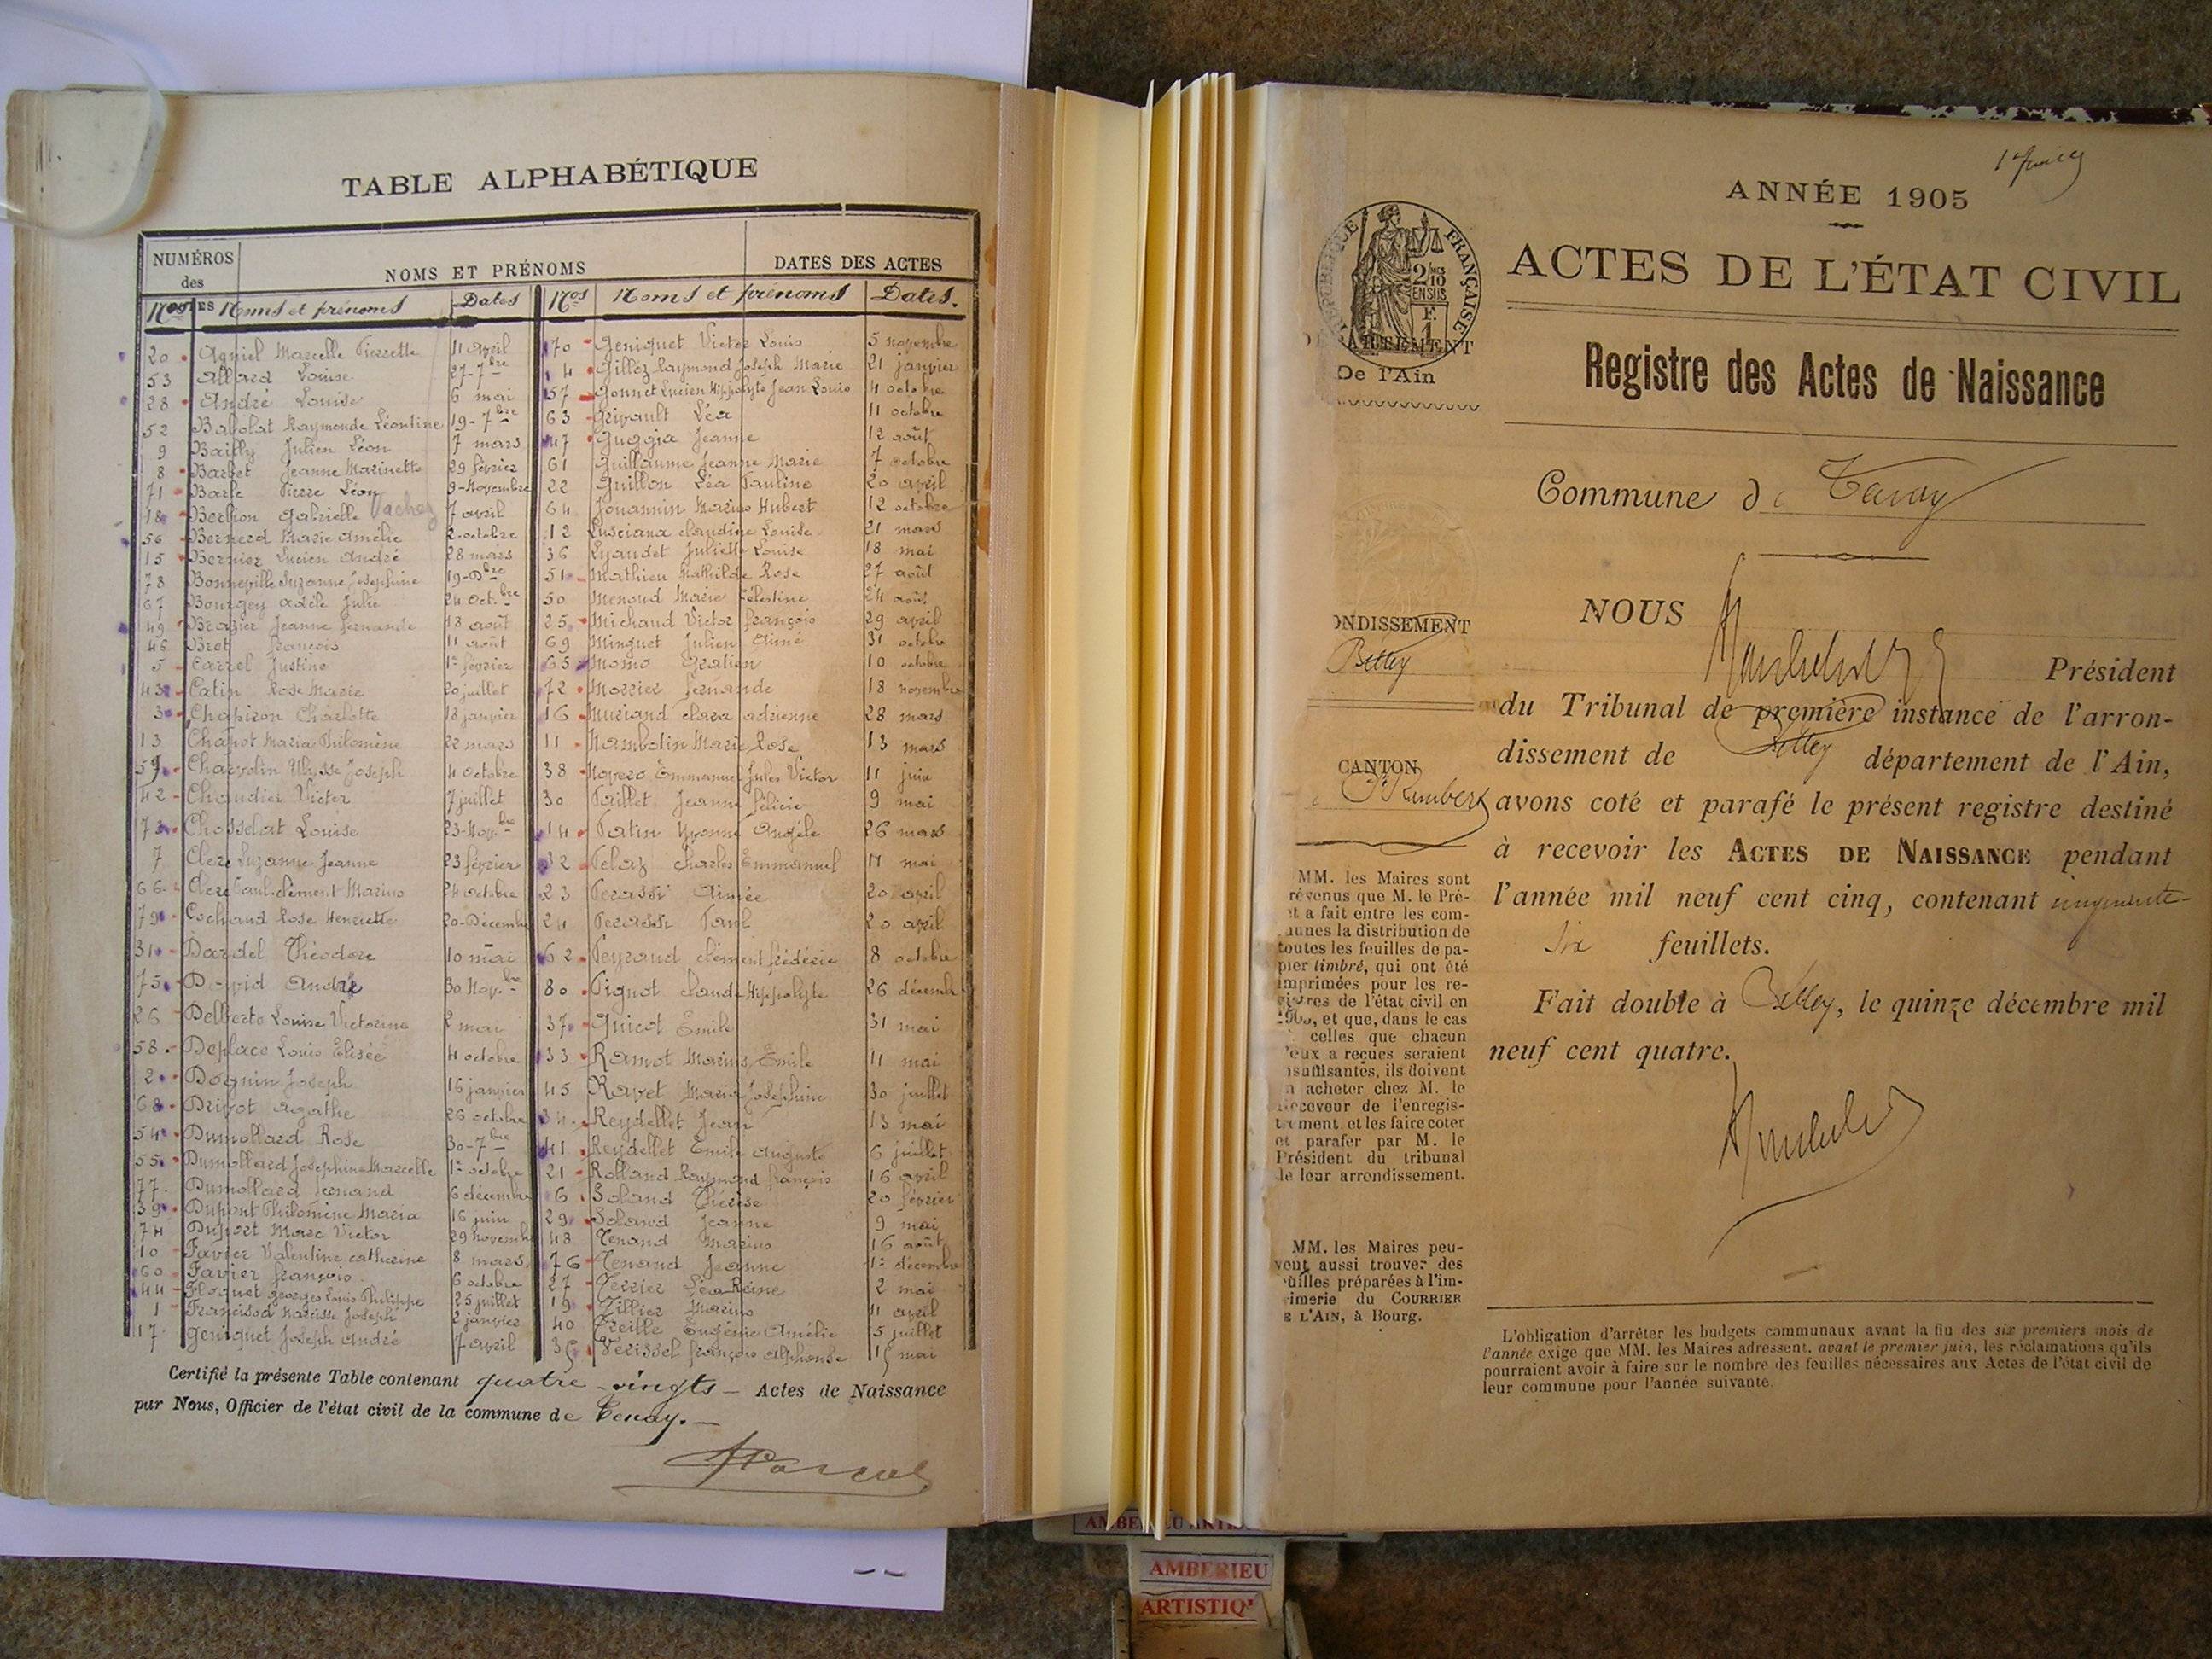 TABLE ALPHABÉTIQUE
NUMÉROS des NOMS ET PRÉNOMS DATES DES ACTES
Nos Noms et prénoms Dates Nos Noms et prénoms Dates.
20 Agniel Marcelle Pierrette 11 avril
53 Allard Louise 27-7bre
28 André Louise 6 mai
52 Babolat Raymonde Léontine 19-7bre
9 Bailly Julien Léon 7 mars
8 Barbet Jeanne Marinette 29 février
71 Barle Pierre Léon 9-Novembre
18 Gabrielle 7 avril
56 Bernerd Marie Amélie 2 octobre
15 Bernier Lucien André 28 mars
78 Bonneville Suzanne Joséphine 19-Dbre
67 Bourgey Adèle Julie 24 Octbre
49 Brazier Jeanne Fernande 18 août
46 Bret François 11 août
5 Carrel Justine 1er février
43 Catin Rose Marie 20 juillet
3 Chapiron Charlotte 18 janvier
13 Chapot Maria Philomène 22 mars
59 Charvolin Ulysse Joseph 4 octobre
42 Chaudier Victor 7 juillet
73 Chosselat Louise 23-Novbre
7 Clerc Suzanne Jeanne 23 février
66 Clerc Paul Clément Marius 24 octobre
79 Cochand Rose Henriette 20-Décembre
31 Dardel Théodore 10 mai
75 David André 30 Novbre
26 Delberto Louise Victorine 2 mai
58 Deplace Louis Elisée 4 octobre
2 Dognin Joseph 16 janvier
68 Drivot Agathe 26 octobre
54 Dumollard Rose 30-7bre
55 Dumollard Joséphine Marcelle 1er octobre
77 Dumollard Fernand 6 décembre
39 Dupont Philomène Maria 16 juin
74 Duport Marc Victor 29 novembre
10 Favier Valentine Catherine 8 mars
60 Favier François 6 octobre
44 Floquet Georges Louis Philippe 25 juillet
1 Francisod Narcisse Joseph 2 janvier
17 Geniquet Joseph André 7 avril
70 Geniquet Victor Louis 5 novembre
4 Gilloz Raymond Joseph Marie 21 janvier
57 Gonnet Lucien Hippolyte Jean Louis 4 octobre
63 Grivault Léa 11 octobre
47 Guggia Jeanne 12 août
61 Guillaume Jeanne Marie 7 octobre
22 Guillon Léa Pauline 20 avril
64 Jouannin Marius Hubert 12 octobre
12 Lusciana Claudine Louise 21 mars
36 Lyaudet Juliette Louise 18 mai
51 Mathieu Mathilde Rose 27 août
50 Menoud Marie Célestine 24 août
25 Michaud Victor François 29 avril
69 Minguet Julien Aimé 31 octobre
65 Momo Gratien 10 octobre
72 Morrier Fernande 18 novembre
16 Muriand Clara Adrienne 28 mars
11 Nambotin Marie Rose 13 mars
38 Novero Emmanuel Jules Victor 11 juin
30 Paillet Jeanne Félicie 9 mai
14 Patin Yvonne Angèle 26 mars
32 Pelaz Charles Emmanuel 11 mai
23 Perassi Aimée 20 avril
24 Perassi Paul 20 avril
62 Peyraud Clément Frédéric 8 octobre
80 Pignot Claude Hippolyte 26 décembre
37 Quicot Emile 31 mai
33 Ramot Marius Emile 11 mai
45 Ravet Maria Joséphine 30 juillet
34 Reydellet Jean 13 mai
41 Reydellet Emile Auguste 6 juillet
21 Rolland Raymond François 16 avril
6 Soland Thérèse 20 février
29 Soland Jeanne 9 mai
48 Tenand Marius 16 août
76 Tenand Jeanne 1er décembre
27 Terrier Léa Reine 2 mai
19 Tillier Marius 11 avril
40 Treille Eugénie Amélie 5 juillet
35 Verissel François Alphonse 15 mai
Certifié la présente Table contenant quatre-vingts - Actes de Naissance
par Nous, Officier de l'état civil de la commune de Tenay. -
ANNÉE 1905
ACTES DE L'ÉTAT CIVIL
Registre des Actes de Naissance
RÉPUBLIQUE FRANÇAISE
2/10 EN SUS
F. 1
DÉPARTEMENT
De l'Ain
Commune de Tenay
NOUS
Président
du Tribunal de première instance de l'arron-
dissement de Belley département de l'Ain,
avons coté et parafé le présent registre destiné
à recevoir les ACTES DE NAISSANCE pendant
l'année mil neuf cent cinq, contenant cinquante-
six feuillets.
Fait double à Belley, le quinze décembre mil
neuf cent quatre.
ONDISSEMENT
Belley
CANTON
St Rambert
MM. les Maires sont
révenus que M. le Pré-
t a fait entre les com-
unes la distribution de
toutes les feuilles de pa-
pier timbré, qui ont été
imprimées pour les re-
gistres de l'état civil en
1905, et que, dans le cas
celles que chacun
'eux a reçues seraient
nsuffisantes, ils doivent
n acheter chez M. le
Receveur de l'enregis-
trement et les faire coter
et parafer par M. le
Président du tribunal
de leur arrondissement.
MM. les Maires peu-
vent aussi trouver des
euilles préparées à l'im-
imerie du COURRIER
E L'AIN, à Bourg.
L'obligation d'arrêter les budgets communaux avant la fin des six premiers mois de
l'année exige que MM. les Maires adressent, avant le premier juin, les réclamations qu'ils
pourraient avoir à faire sur le nombre des feuilles nécessaires aux Actes de l'état civil de
leur commune pour l'année suivante.
AMBERIEU
ARTISTIQ'